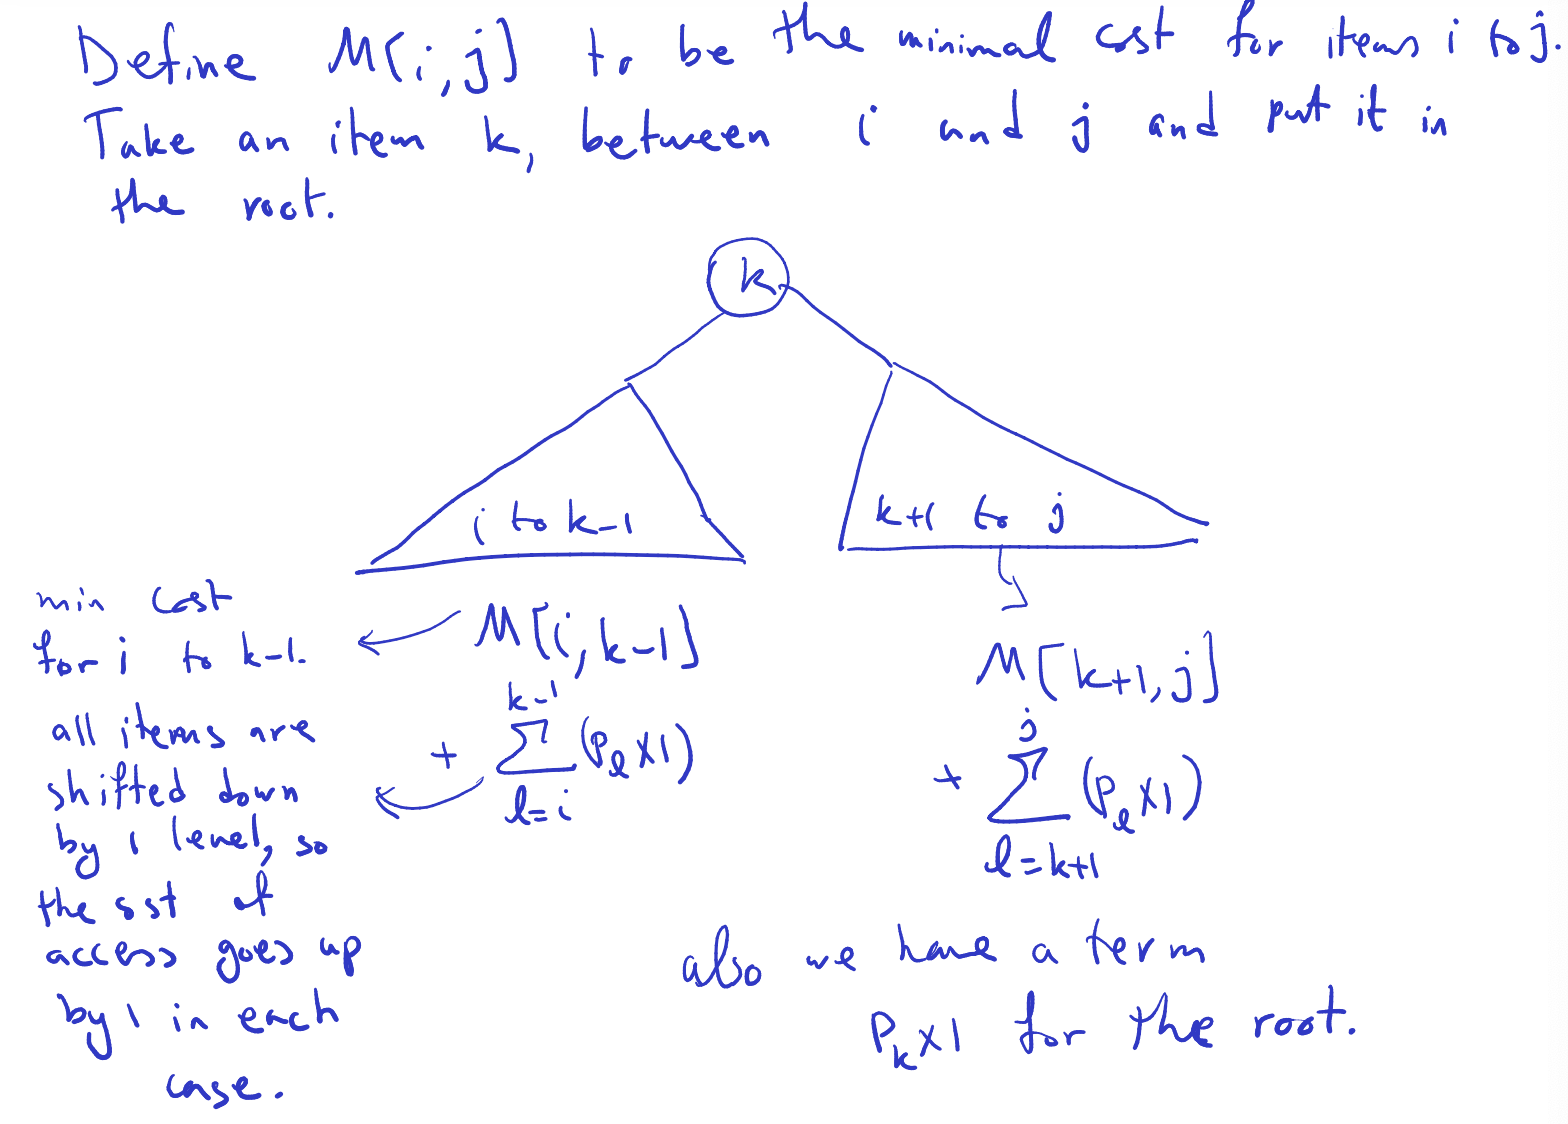 Define M[i,j] to be the minimal cost for items i to j.
Take an item k, between i and j and put it in
the root.
k
i to k-1
k+1 to j
min cost
for i to k-1.
M[i, k-1]
M[k+1, j]
all items are
shifted down
by 1 level, so
the cost of
access goes up
by 1 in each
case.
+ \sum_{l=i}^{k-1} (P_l x 1)
+ \sum_{l=k+1}^{j} (P_l x 1)
also we have a term
P_k x 1 for the root.